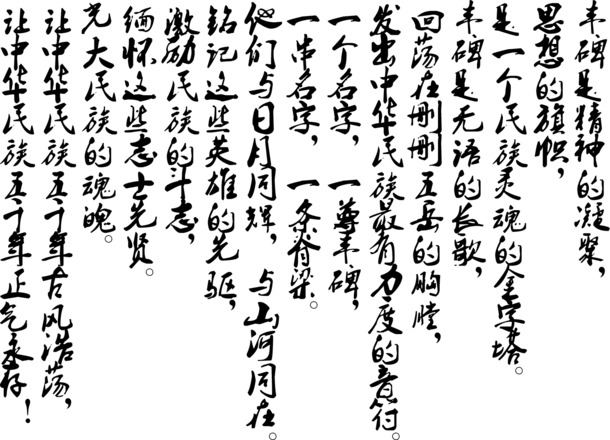 丰碑是精神的凝聚，
思想的旗帜，
是一个民族灵魂的金字塔。
丰碑是无语的长歌，
回荡在删删五岳的胸膛，
发出中华民族最有力度的音符。
一个名字，一尊丰碑，
一串名字，一条脊梁。
他们与日月同辉，与山河同在。
铭记这些英雄的先驱，
激励民族的斗志，
缅怀这些志士先贤。
光大民族的魂魄。
让中华民族五千年古风浩荡，
让中华民族五千年正气永存！